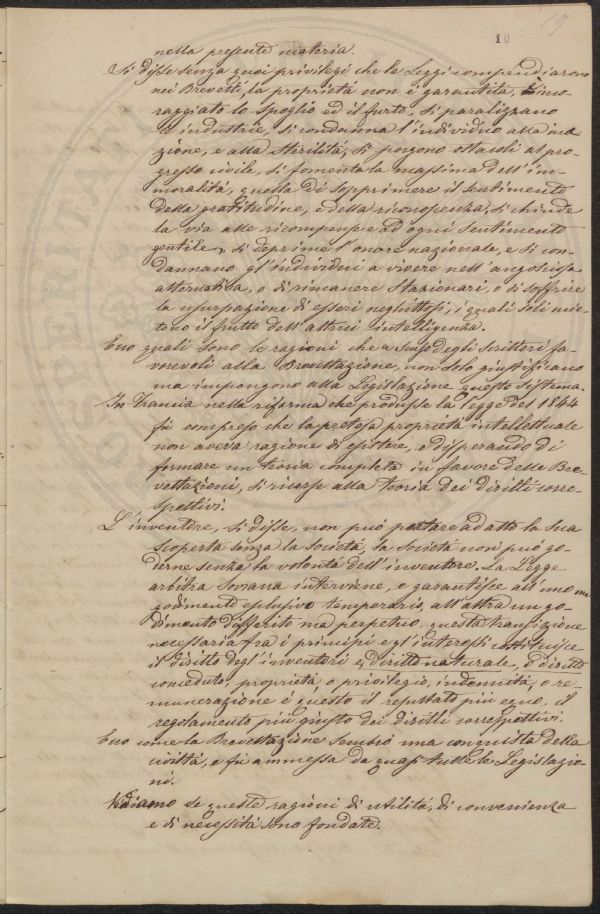 10
19
nella presente materia.
Si disse senza quei privilegi che le Leggi compendiarono
nei Brevetti, la proprietà non è garantita, è inco-
raggiato lo spoglio ed il furto, si paralizzano
le industrie, si condanna l'individuo alla ina-
zione, e alla sterilità, si porgono ostacoli al pro-
gresso civile, si fomenta la massima dell'im-
moralità, quella di sopprimere il sentimento
della gratitudine, e della riconoscenza, si chiude
la via alle ricompense e ad ogni sentimento
gentile, si deprime l'onore nazionale, e si con-
dannano gl'individui a vivere nell'angosciosa
alternativa, o di rimanere stazionari, o di soffrire
la usurpazione di esseri neghittosi, i quali soli mie-
tono il frutto dell'altrui intelligenza.
Ecco quali sono le ragioni che a senso degli scrittori fa-
vorevoli alla Brevettazione, non solo giustificano
ma impongono alla Legislazione questo sistema.
In Francia nella riforma che produsse la legge del 1844
fù compreso che la pretesa proprietà intellettuale
non aveva ragione di esistere, e disperando di
formare un teoria completa in favore delle Bre-
vettazioni, si ricorse alla teoria dei diritti corre-
spettivi.
L'inventore, si disse, non può portare ad atto la sua
scoperta senza la società, la società non può go-
derne senza la volontà dell'inventore. La Legge
arbitra sovrana interviene, e garantisce all'uno un
godimento esclusivo temporario, all'altra un go-
dimento differito ma perpetuo, questa transizione
necessaria fra i principi e gl'interessi costituisce
il diritto degl'inventori e, diritto naturale, o diritto
conceduto, proprietà, o privilegio, indennità, o re-
munerazione è questo il reputato più equo, il
regolamento più giusto dei diritti correspettivi.
Ecco come la Brevettazione sembrò una conquista della
civiltà, e fù ammessa da quasi tutte le Legislazio-
ni.
Vediamo se queste ragioni di utilità, di convenienza
e di necessità sono fondate.